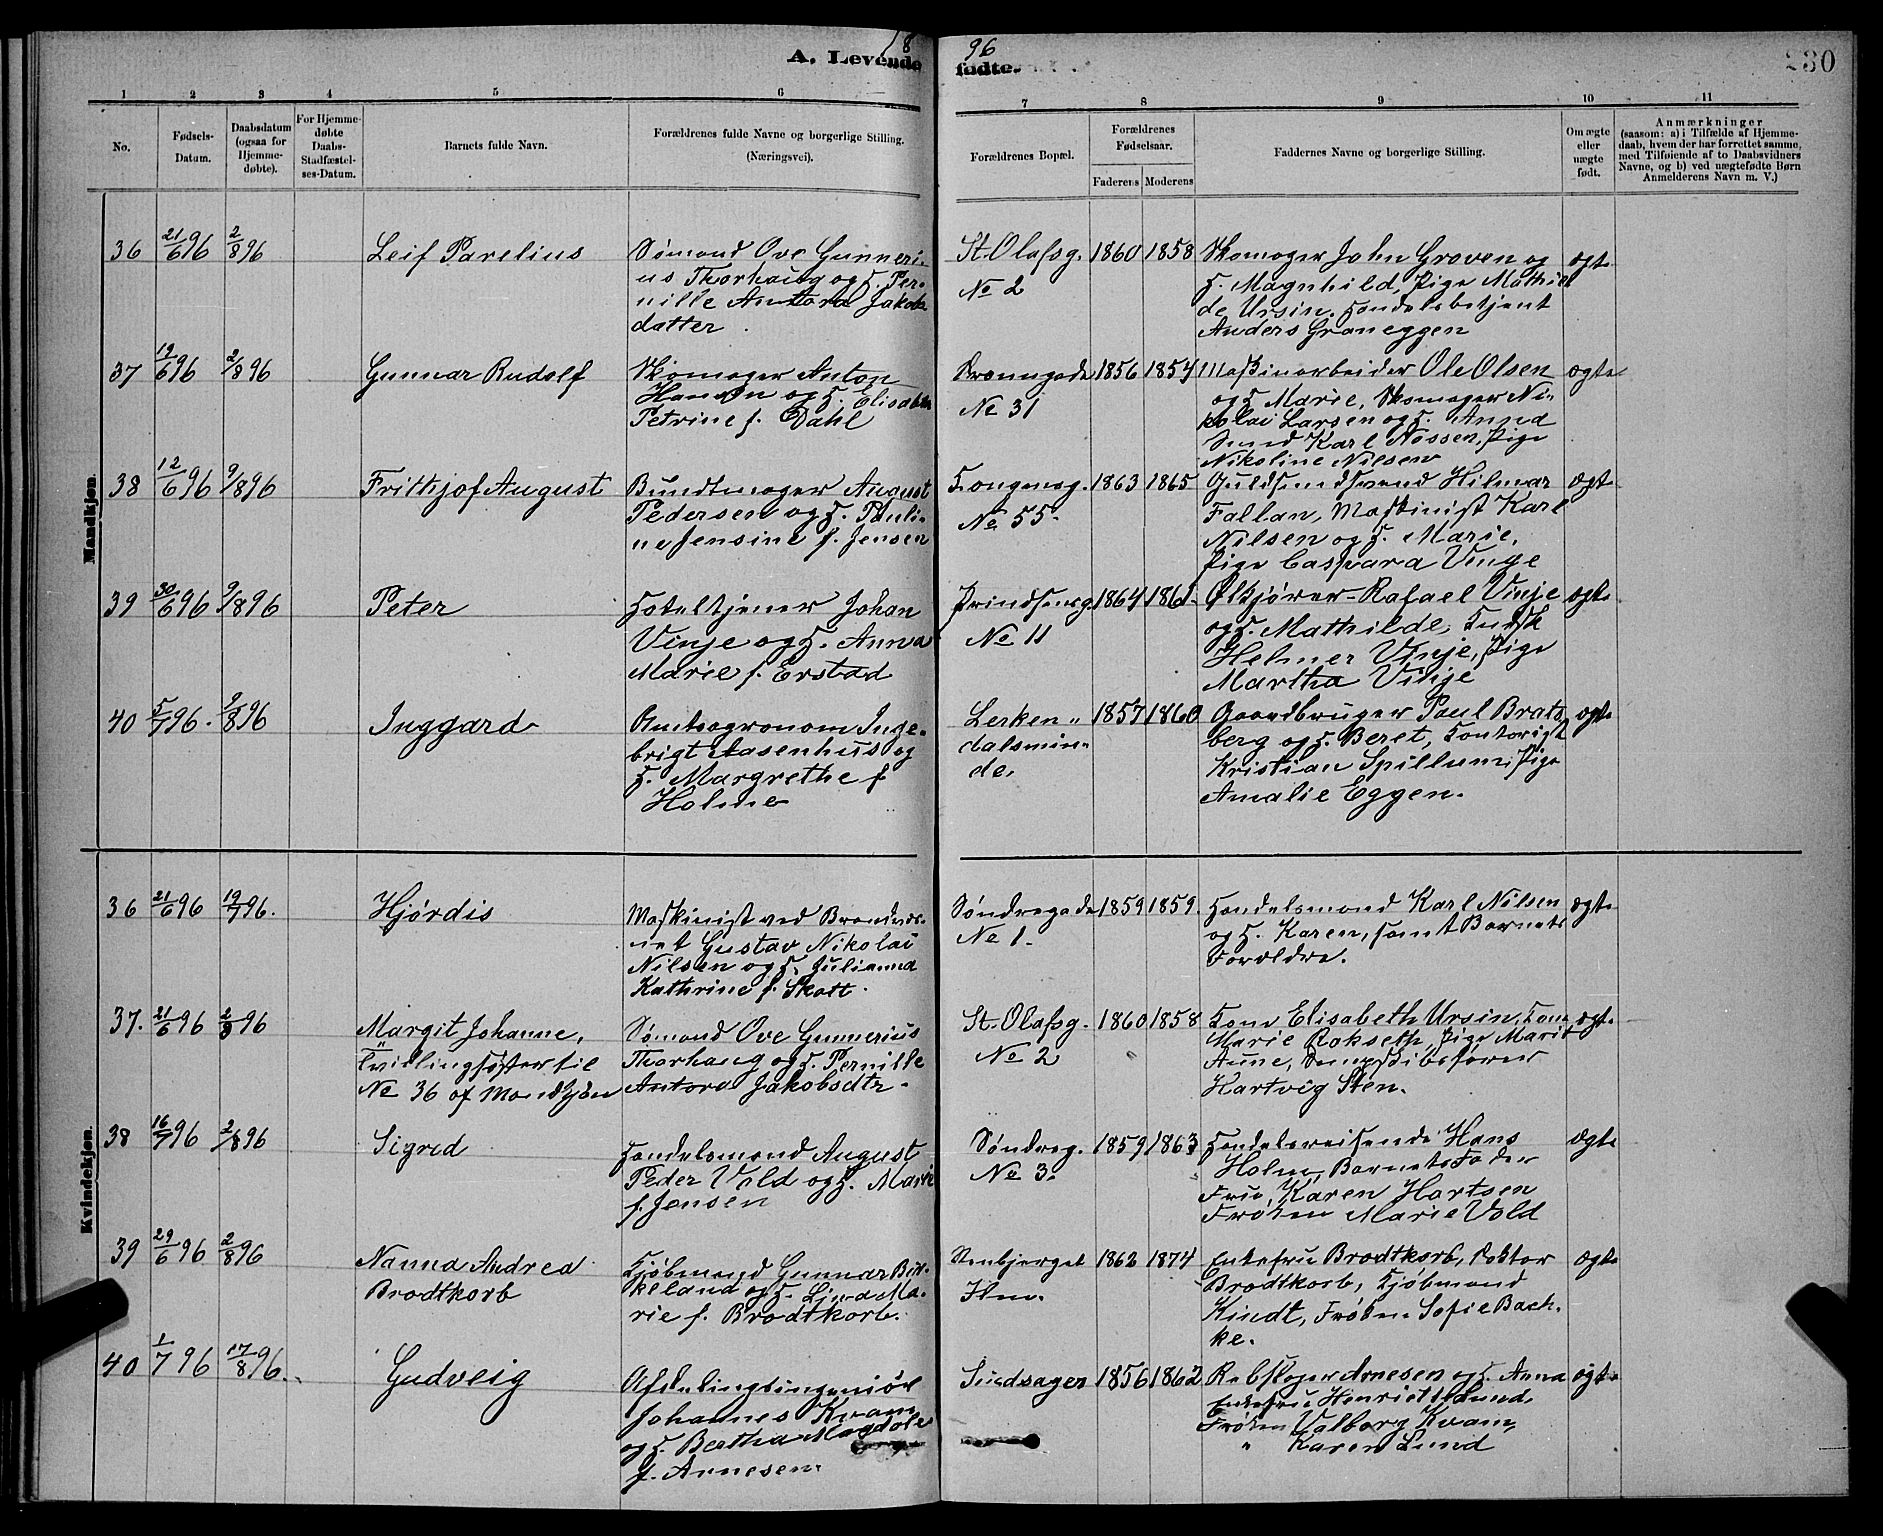 1896
A. Levende fødte.
230
1 2 3 4 5 6 7 8 9 10 11
No.
Fødsels-
Datum.
Daabsdatum
(ogsaa for
Hjemme-
døbte).
For Hjemme-
døbte
Daabs-
Stadfæstel-
ses-Datum.
Barnets fulde Navn.
Forældrenes fulde Navne og borgerlige Stilling.
(Næringsvei).
Forældrenes Bopæl.
Forældrenes
Fødselsaar.
Faderens Moderens
Faddernes Navne og borgerlige Stilling.
Om ægte
eller
uægte
født.
Anmærkninger
(saasom: a) i Tilfælde af Hjemme-
daab, hvem der har forrettet samme,
med Tilføiende af to Daabsvidners
Navne, og b) ved uægtefødte Børn
Anmelderens Navn m. V.)
Mandkjøn.
36 21/6 96 2/8 96 Leif Parelius
Sømand Ove Gunneri-
us Thorhaug og H. Per-
nille Antora Jakobs
datter.
St. Olafsg.
No 2
1860 1858
Skomager John Groven og
H. Magnhild, Pige Mathil
de Ursin, Handelsbetjent
Anders Graneggen
ægte
37 19/6 96 2/8 96 Gunnar Rudolf
Skomager Anton
Hansen og H. Elisabeth
Petrine f. Dahl
Dronngade
No 31
1856 1854
Maskinarbeider Ole Olsen
og H. Marie, Skomager Ni-
kolai Larsen og H. Anna
Svend Karl Nossen, Pige
Nikoline Nilsen
ægte
38 12/6 96 9/8 96 Frithjof August
Bundtmager August
Pedersen og H. Pauli-
ne Jensine f. Jensen
Kongensg.
No 55.
1863 1865
Guldsmedsvend Hilmar
Fallan, Maskinist Karl
Nilsen og H. Marie,
Pige Caspara Vinge
ægte
39 30/6 96 9/8 96 Peter
Hoteltjener Johan
Vinje og H. Anna
Marie f. Erstad
Prindsensg
No 11
1864 1861
Ølkjører Rafael Vinje
og H. Mathilde, Kudsk
Helmer Vinje, Pige
Martha Vinje
ægte
40 5/7 96. 9/8 96 Inggard
Amtsagronom Inge-
brigt Aasenhus og
H. Margrethe f
Holme
Lerken-
dalsmin-
de.
1857 1860
Gaardbruger Paul Brats
berg og H. Beret, Kontorist
Kristian Spillum, Pige
Amalie Eggen.
ægte
Kvindekjøn.
36 21/6 96 19/7 96. Hjørdis
Maskinist ved Brandvæs-
net Gustav Nikolai
Nilsen og H. Julianna
Kathrine f. Skatt.
Søndregade
No 1.
1859 1859.
Handelsmand Karl Nilsen
og H. Karen, samt Barnets
Forældre.
ægte
37. 21/6 96 2/8 96
Margit Johanne,
Tvillingsøster til
No 36 af Mandkjøn
Sømand Ove Gunnerius
Thorhaug og H. Pernille
Antora Jakobsdtr.
St. Olafsg.
No 2
1860 1858
Kone Elisabeth Ursin, Kone
Marie Rokseth, Pige Marit
Aune, Dampskibsfører
Hartvig Sten.
ægte
38 16/7 96 2/8 96 Sigrid
Handelsmand August
Peder Vold og H. Marie
f. Jensen
Søndreg.
No 3.
1859 1863
Handelsreisende Hans
Holm, Barnets Fader
Frue, Karen Hartsen
Frøken Marie Vold
ægte
39 29/6 96 2/8 96
Nanna Andrea
Brodtkorb
Kjøbmand Gunnar Bir-
keland og H. Lina Ma-
rie f. Brodtkorb.
Stenbjerget
Ihlen.
1862 1874
Enkefru Brodtkorb, Doktor
Brodtkorb, Kjøbmand
Kindt, Frøken Sofie Bach-
ke.
ægte
40 1/7 96 17/8 96. Gudveig
Afdelingsingeniør
Johannes Kvam
og H. Bertha Magdale
f. Arnesen.
Sundsager
1856 1862
Rebslager Arnesen og H. Anna
Enkefru Henriette Lund,
Frøken Valborg Kvam,
" Karen Lund
ægte